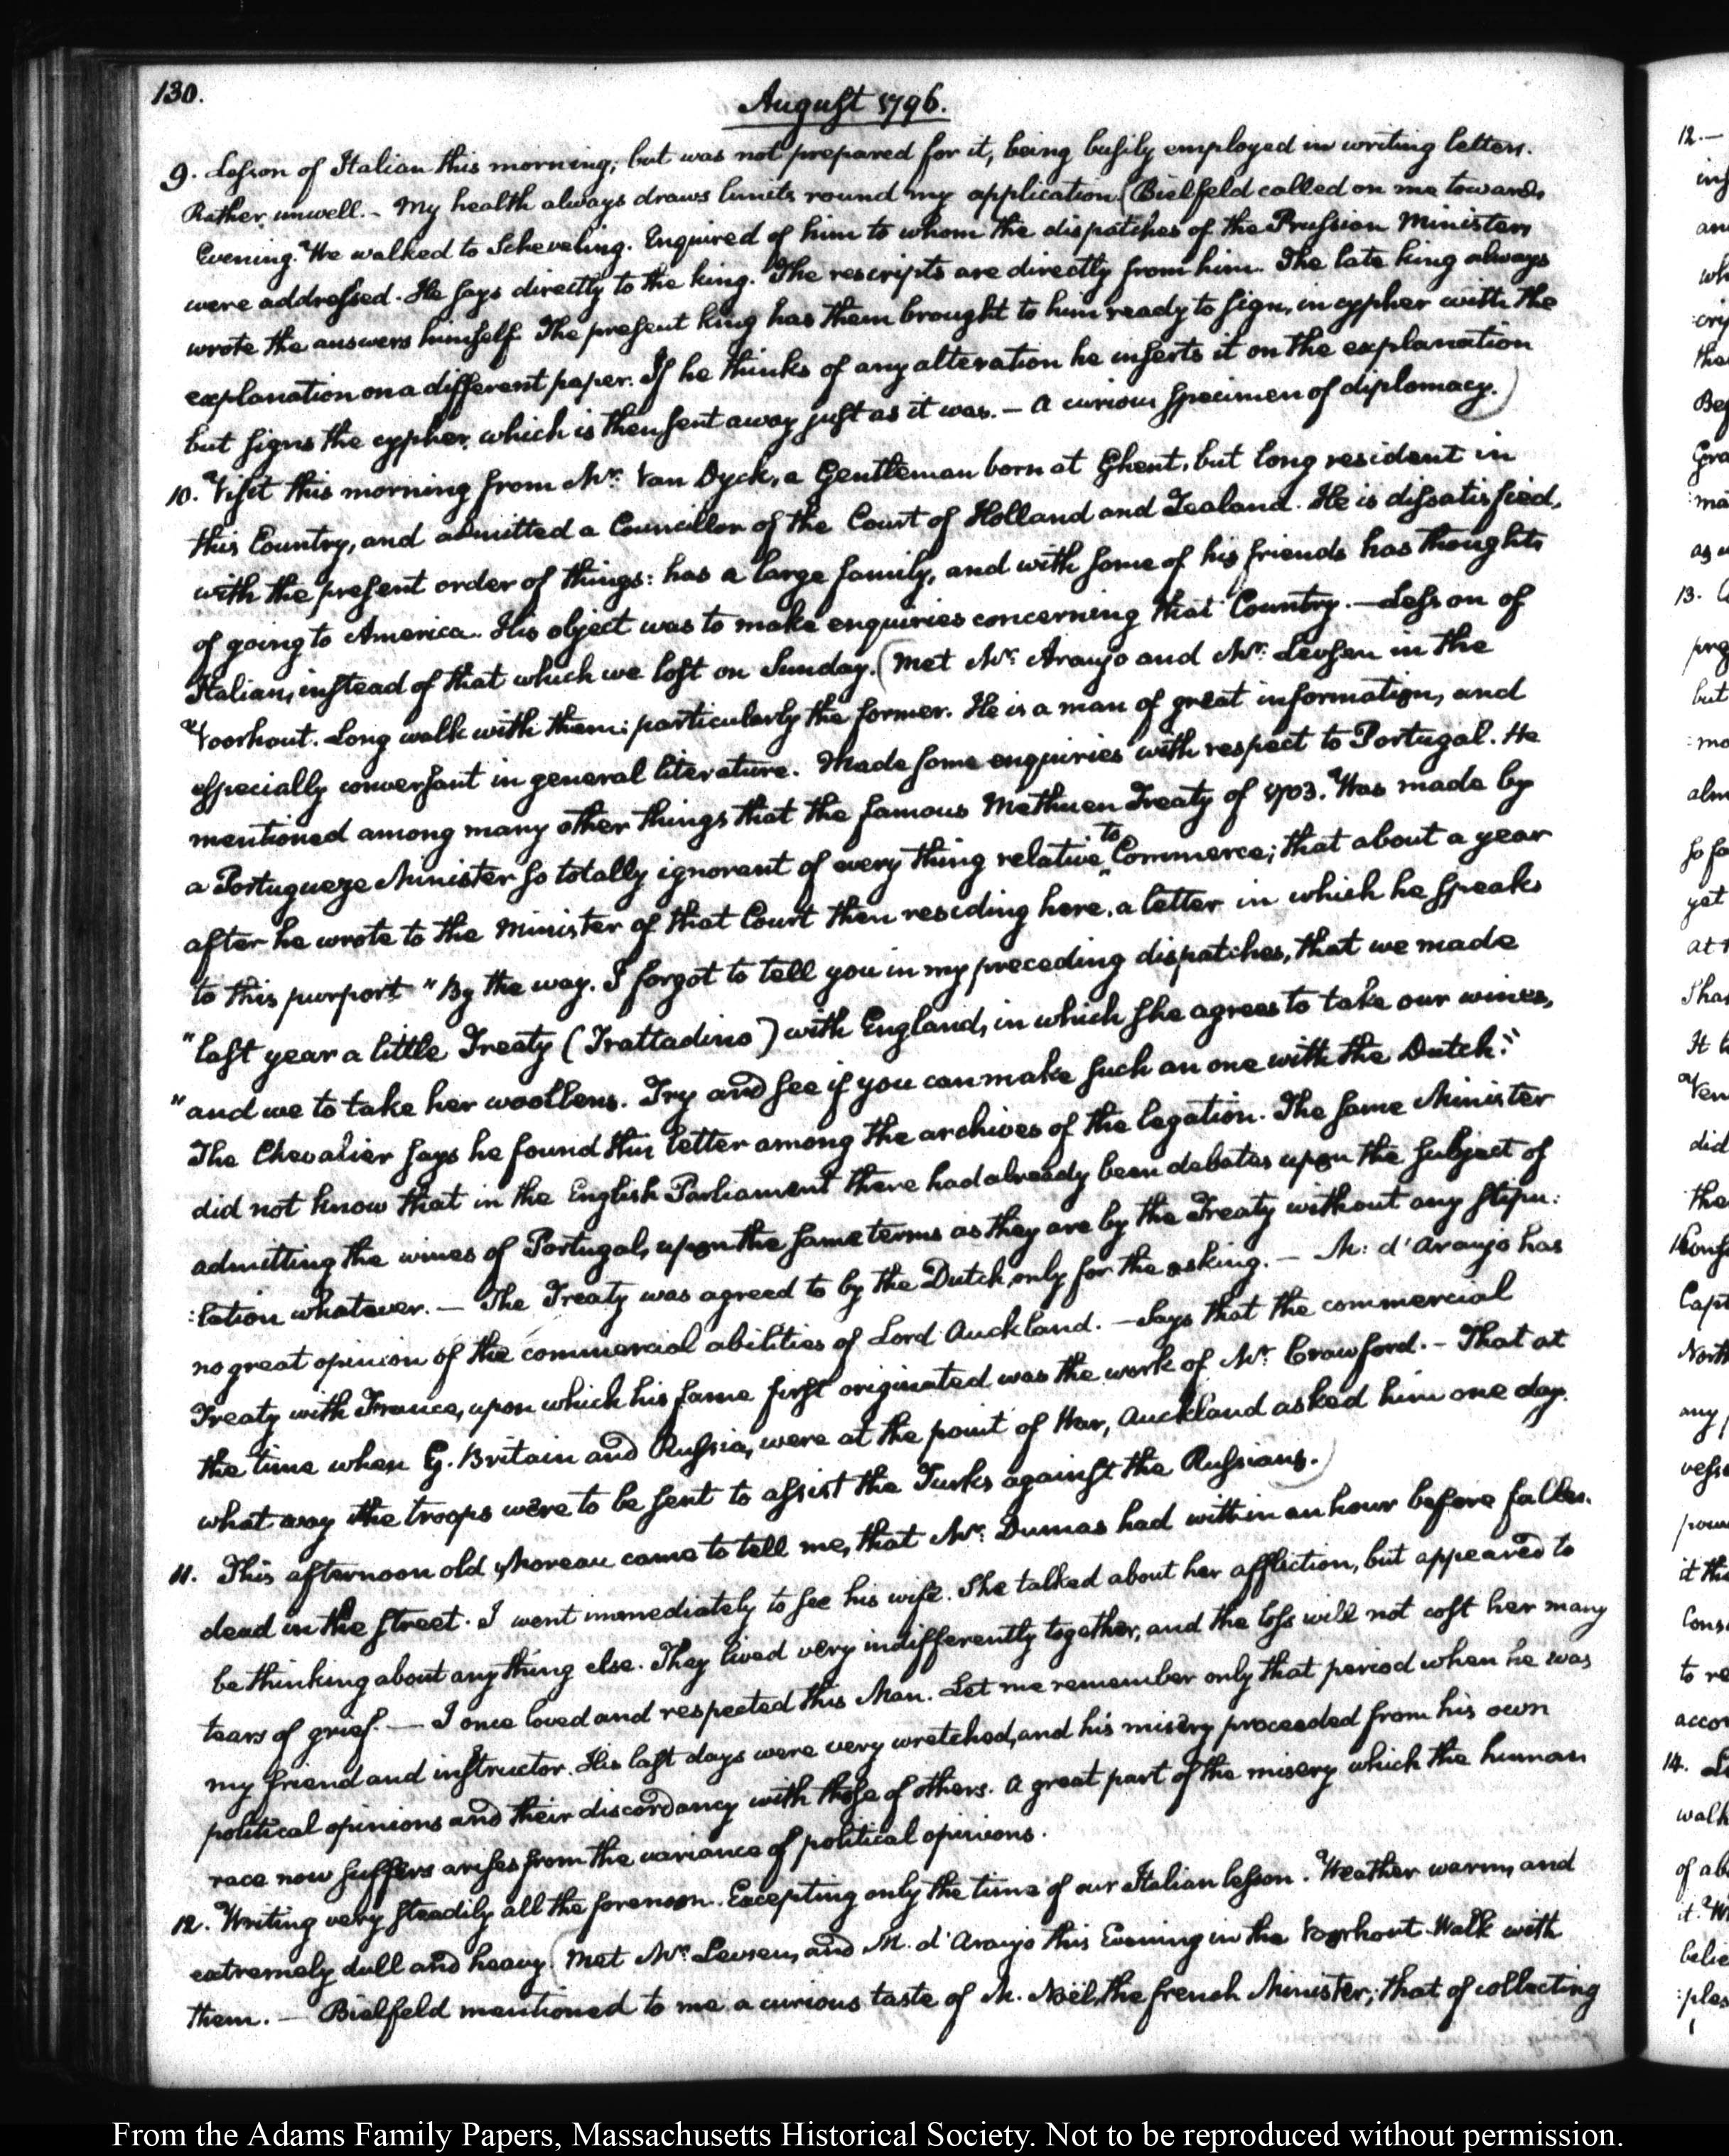 130.
August 1796.
9. Lesson of Italian this morning; but was not prepared for it, being busily employed in writing letters.
Rather unwell. – My health always draws limits round my application. (Bielfeld called on me towards
Evening. We walked to Scheveling. Enquired of him to whom the dispatches of the Prussian Ministers
were addressed. He says directly to the king. The rescripts are directly from him. The late king always
wrote the answers himself. The present king has them brought to him ready to sign, in cypher with the
explanation on a different paper. If he thinks of any alteration he inserts it on the explanation
but signs the cypher, which is then sent away just as it was. – A curious specimen of diplomacy.)
10. Visit this morning from Mr: Van Dyck, a Gentleman born at Ghent, but long resident in
this Country, and admitted a Councillor of the Court of Holland and Zealand. He is dissatisfied,
with the present order of things: has a large family, and with some of his friends has thoughts
of going to America. His object was to make enquiries concerning that Country. – Lesson of
Italian, instead of that which we lost on Sunday. (Met Mr: Araujo and Mr: Levsen in the
Voorhout. Long walk with them: particularly the former. He is a man of great information, and
especially conversant in general literature. Made some enquiries with respect to Portugal. He
mentioned among many other things that the famous Methuen Treaty of 1703. Was made by
a Portugueze Minister so totally ignorant of every thing relative to Commerce; that about a year
after he wrote to the Minister of that Court then residing here, a letter in which he speaks
to this purport "By the way. I forgot to tell you in my preceding dispatches, that we made
"last year a little Treaty (Trattadino) with England, in which she agrees to take our wines,
"and we to take her woollens. Try and see if you can make such an one with the Dutch."
The Chevalier says he found this letter among the archives of the legation. The same Minister
did not know that in the English Parliament there had already been debates upon the subject of
admitting the wines of Portugal, upon the same terms as they are by the Treaty without any stipu:
:lation whatever. – The Treaty was agreed to by the Dutch, only for the asking. – M: d'Araujo has
no great opinion of the commercial abilities of Lord Auckland. – Says that the commercial
Treaty with France, upon which his fame first originated was the work of Mr: Crawford. – That at
the time when G. Britain and Russia, were at the point of War, Auckland asked him one day.
what way the troops were to be sent to assist the Turks against the Russians.)
11. This afternoon old Moreau came to tell me, that Mr: Dumas had within an hour before fallen
dead in the street. I went immediately to see his wife. She talked about her affliction, but appeared to
be thinking about any thing else. They lived very indifferently together, and the loss will not cost her many
tears of grief. — I once loved and respected this Man. Let me remember only that period when he was
my friend and instructor. His last days were very wretched, and his misery proceeded from his own
political opinions and their discordancy with those of others. A great part of the misery which the human
race now suffers arises from the variance of political opinions.
12. Writing very steadily all the forenoon. Excepting only the time of our Italian lesson. Weather warm, and
extremely dull and heavy. (Met Mr: Levsen, and M. d'Araujo this Evening in the Voorhout. Walk with
them. — Bielfeld mentioned to me a curious taste of M. Noël, the french Minister; that of collecting
From the Adams Family Papers, Massachusetts Historical Society. Not to be reproduced without permission.